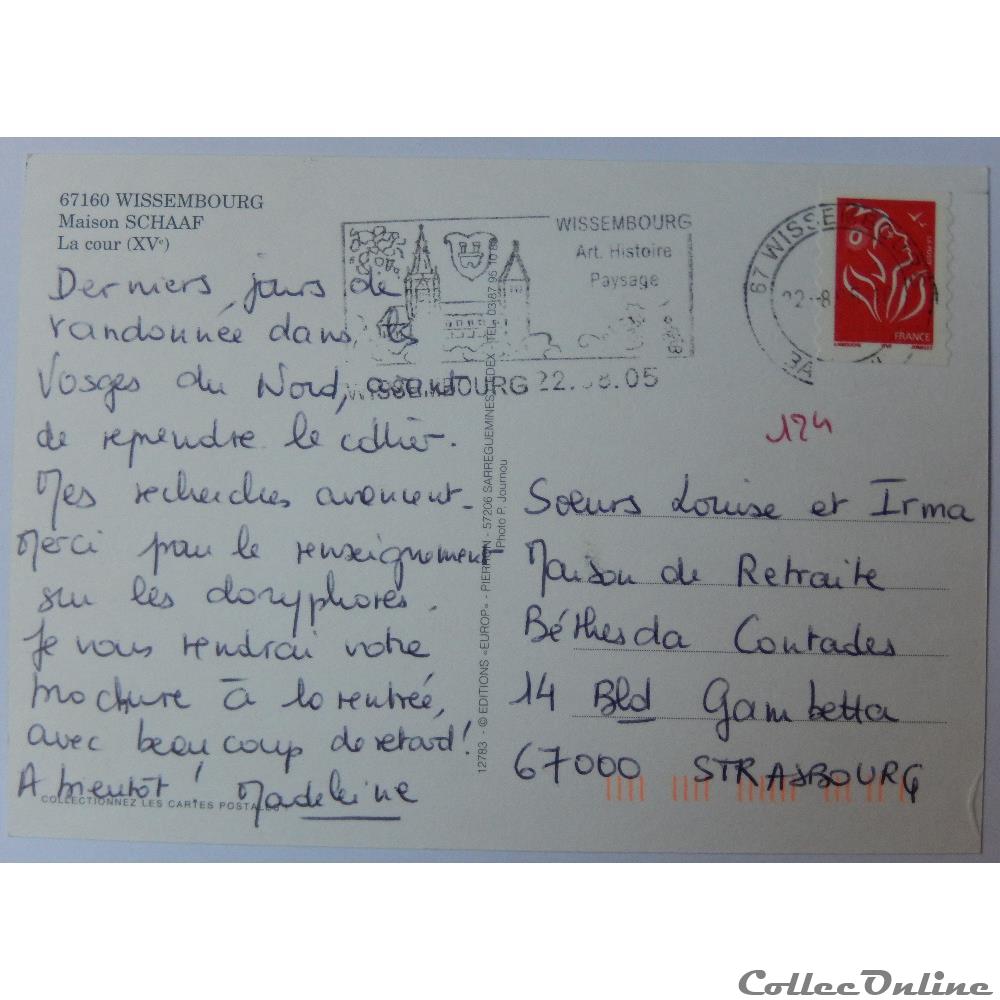 67160 WISSEMBOURG
Maison SCHAAF
La cour (XVe)
WISSEMBOURG
Art. Histoire
Paysage
WISSEMBOURG 22.08.05
67 WISSEMB
22-8
FRANCE
Derniers jours de
randonnée dans les
Vosges du Nord, avant
de reprendre le collier.
Mes recherches avancent.
Merci pour le renseignement
sur les doryphores.
Je vous rendrai votre
brochure à la rentrée,
avec beaucoup de retard!
A bientôt! Madeleine
COLLECTIONNEZ LES CARTES POSTALES
12783 - © EDITIONS «EUROP» - PIERRON - 57206 SARREGUEMINES CEDEX - TEL. 03 87 95 10 89
Photo P. Journou
124
Soeurs Louise et Irma
Maison de Retraite
Béthesda Contades
14 Bld Gambetta
67000 STRASBOURG
CollecOnline